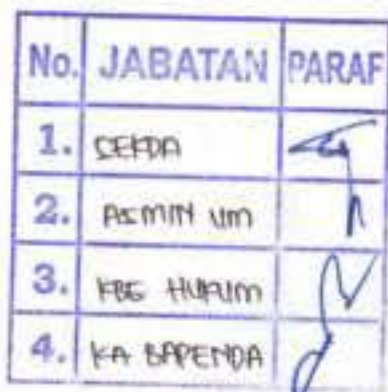 No. JABATAN PARAF
1. SEKDA
2. ASMIN UM
3. KBG HUKUM
4. KA BAPENDA